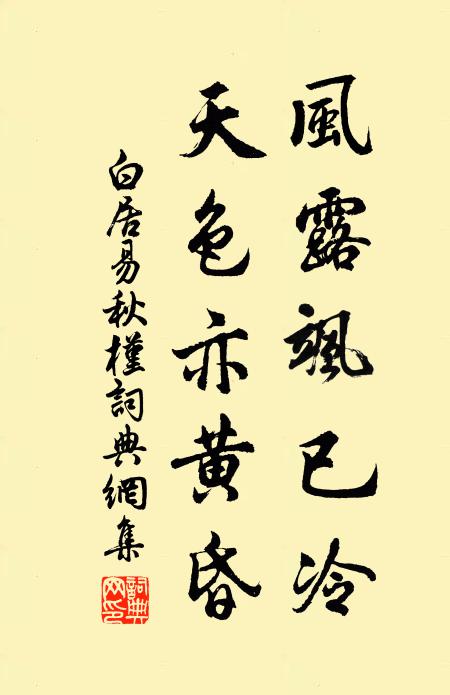 風露颯已冷
天色亦黄昏
白居易秋槿詞典網集
詞典網印